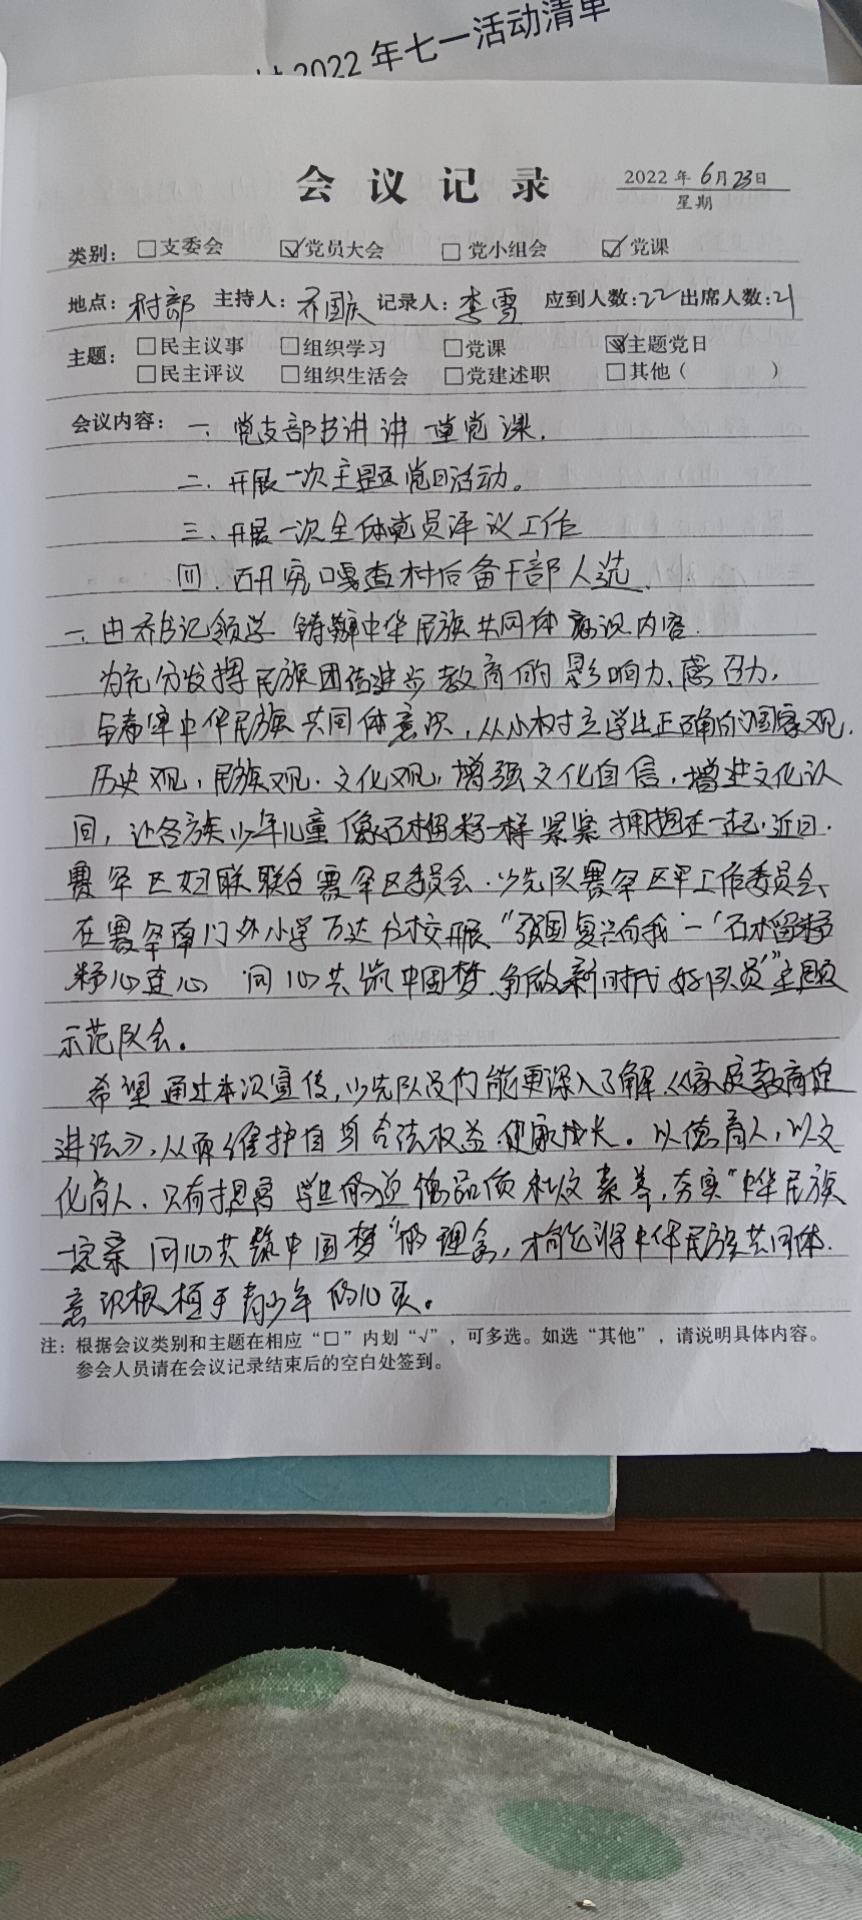 2022年七一活动清单
会议记录
2022年6月23日
星期
类别：□支委会 ☑党员大会 □党小组会 ☑党课
地点：村部 主持人：乔国庆 记录人：李雪 应到人数：22 出席人数：21
主题：□民主议事 □组织学习 □党课 ☑主题党日
□民主评议 □组织生活会 □党建述职 □其他（ ）
会议内容：一、党支部书讲讲一堂党课.
二、开展一次主题党日活动。
三、开展一次全体党员评议工作
四、研究嘎查村后备干部人选、
一、由乔书记领学 铸牢中华民族共同体意识内容.
为充分发挥民族团结进步教育的影响力、感召力,
铸牢中华民族共同体意识,从小树立学生正确的国家观.
历史观,民族观.文化观,增强文化自信,增进文化认
同,让各族少年儿童像石榴籽一样紧紧拥抱在一起.近日.
赛罕区妇联联合赛罕区委员会.少先队赛罕区工作委员会、
在赛罕南门外小学万达分校开展“强国复兴有我一‘石榴籽
籽心连心 同心共筑中国梦.争做新时代好队员’”主题
示范队会。
希望通过本次宣传,少先队员们能更深入了解《家庭教育促
进法》,从而维护自身合法权益.健康成长。以德育人,以文
化育人.只有提高学生的道德品质和文素养,夯实“中华民族
一家亲 同心共筑中国梦”的理念,才能将中华民族共同体.
意识根植于青少年的心头。
注：根据会议类别和主题在相应“□”内划“√”，可多选。如选“其他”，请说明具体内容。
参会人员请在会议记录结束后的空白处签到。